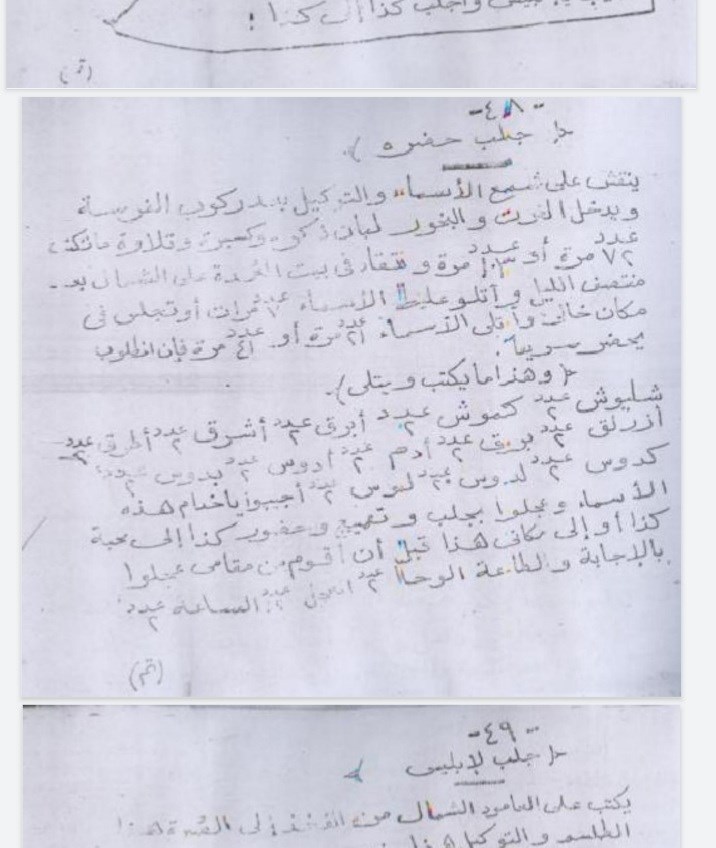 واجلب كذا إلى كذا !
(تم)
-٤٨-
﴿ جلب حضره ﴾
ينقش على شمع الأسماء والتوكيل بعد ركوب الفريسة
ويدخل الفرن والبخور لبان ذكر وكسبرة وتلاوة
عدد ٧٢ مرة أو عدد مرة و في بيت على الشمال بعد
منتصف الليل و أتلو عليها الأسماء عدد ٧ مرات أو تجلس في
مكان خالي وأتلى الأسماء عدد ٢١ مرة أو عدد ٤١ مرة فإن المطلوب
يحضر سريعا .
﴿ وهذا ما يكتب ويتلى ﴾
شليوش عدد ٢ كموش عدد ٢ أبرق عدد ٢ أشرق عدد ٢ أطرق عدد ٢
أزرلق عدد ٢ بريق عدد ٢ أدم عدد ٢ أدوس عدد ٢ بدوس عدد ٢
كدوس عدد ٢ لدوس عدد ٢ لبوس عدد ٢ أجيبوا ياخدام هذه
الأسماء وعجلوا بجلب و تهييج وحضور كذا إلى محبة
كذا أو إلى مكاني هذا قبل أن أقوم من مقامى عجلوا
بالإجابة والطاعة الوحا عدد ٢ العجل عدد ٢ الساعة عدد ٢
(تم)
-٤٩-
﴿ جلب لإبليس
يكتب على العامود الشمال من إلى هذا
الطلسم والتوكيل